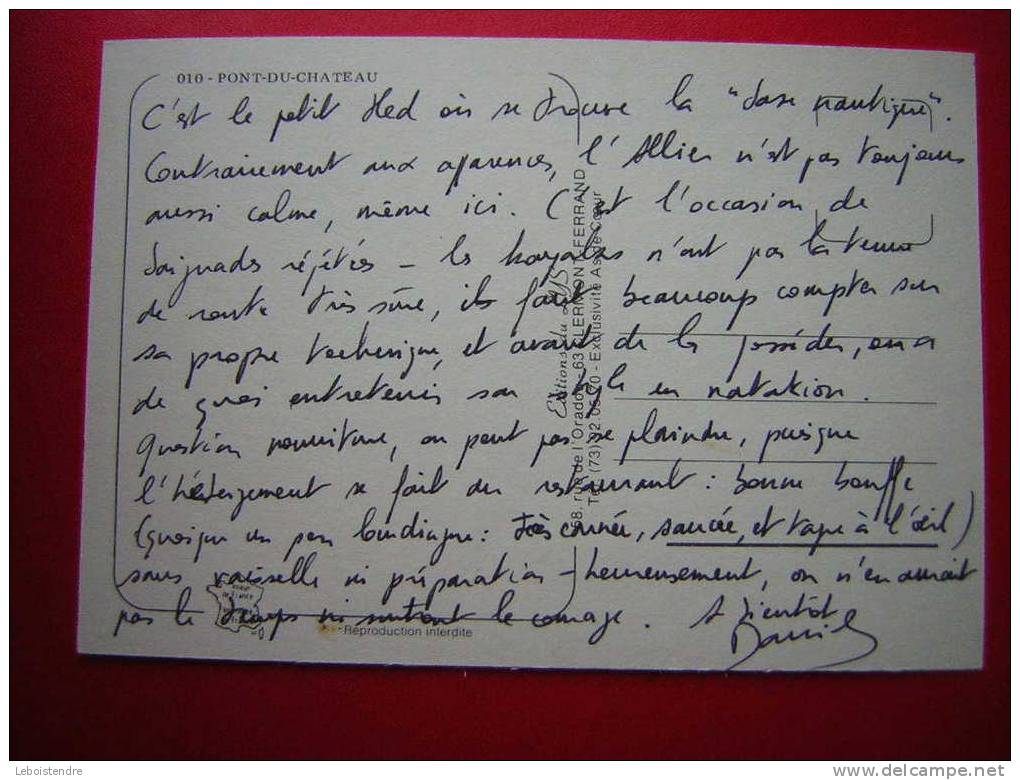 010 - PONT-DU-CHATEAU
C'est le petit bled où se trouve la "base nautique".
Contrairement aux apparences, l'Allier n'est pas toujours
aussi calme, même ici. C'est l'occasion de
baignades répétées - les kayaks n'ont pas la tenue
de route très sûre, il faut beaucoup compter sur
sa propre technique, et avant de la posséder, on a
de quoi entretenir son style en natation.
Question nourriture, on peut pas se plaindre, puisque
l'hébergement se fait au restaurant : bonne bouffe
(quoique un peu loudingue : très saucée, et tape à l'œil)
sans vaisselle ni préparation - heureusement, on n'en aurait
pas le temps ni surtout le courage. A bientôt
Daniel
Editions du
58, rue de l'Oradou - 63 CLERMONT-FERRAND
Tél. (73) 92 05 70 - Exclusivité As de Cœur
Reproduction interdite
Leboistendre
www.delcampe.net